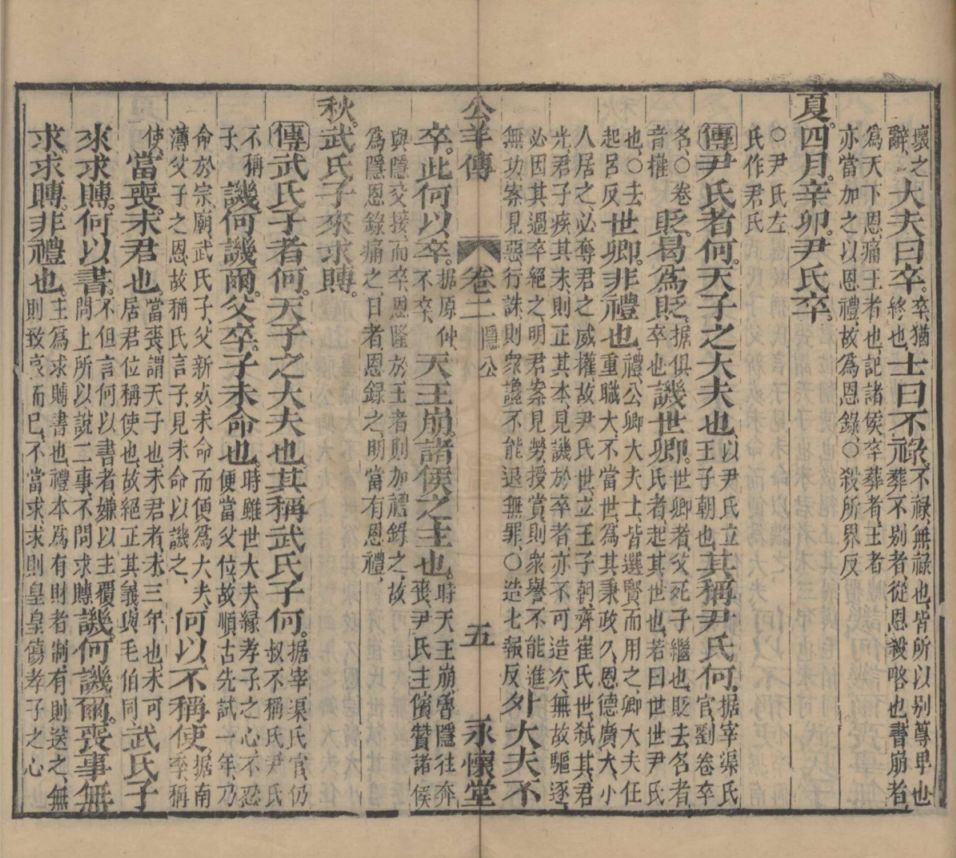 壞之辭大夫曰卒卒猶終也士曰不祿不祿無祿也皆所以别尊卑也葬不别者從恩殺略也書崩者
為天下恩痛王者也記諸侯卒葬者王者亦當加之以恩禮故為恩錄○殺所界反
夏四月辛卯尹氏卒
○尹氏左氏作君氏
傳尹氏者何天子之大夫也以尹氏立王子朝也其稱尹氏何據宰渠氏官劉卷卒
名○卷音權貶曷為貶據俱卒也譏世卿世卿者父死子繼也貶去名者氏者起其世也若曰世世尹氏
也○去起呂反世卿非禮也禮公卿大夫士皆選賢而用之卿大夫任重職大不當世為其秉政久恩德廣大小
人居之必奪君之威權故尹氏世立王子朝齊崔氏世弑其君光君子疾其末則正其本見譏於卒者亦不可造次無故驅逐
必因其過卒絕之明君案見勞授賞則衆譽不能進無功案見惡行誅則衆讒不能退無罪○造七報反外大夫不
公羊傳 卷二隱公 五 永懷堂
卒此何以卒據原仲不卒天王崩諸侯之主也時天王崩魯隱往奔喪尹氏主儐贊諸侯
與隱交接而卒恩隆於王者則加禮錄之故為隱恩錄痛之日者恩錄之明當有恩禮
秋武氏子來求賻
傳武氏子者何天子之大夫也其稱武氏子何據宰渠氏官仍叔不稱氏尹氏
不稱子譏何譏爾父卒子未命也時雖世大夫緣孝子之心不忍便當父位故順古先試一年乃
命於宗廟武氏子父新死未命而便為大夫薄父子之恩故稱氏言子見未命以譏之何以不稱使據南季稱
使當喪未君也當喪謂天子也未君者未三年也未可居君位稱使也故絕正其義與毛伯同武氏子
來求賻何以書不但言何以書者嫌以主覆問上所以說二事不問求賻譏何譏爾喪事無
求求賻非禮也主為求賻書也禮本為有財者制有則送之無則致哀而已不當求求則皇皇傷孝子之心